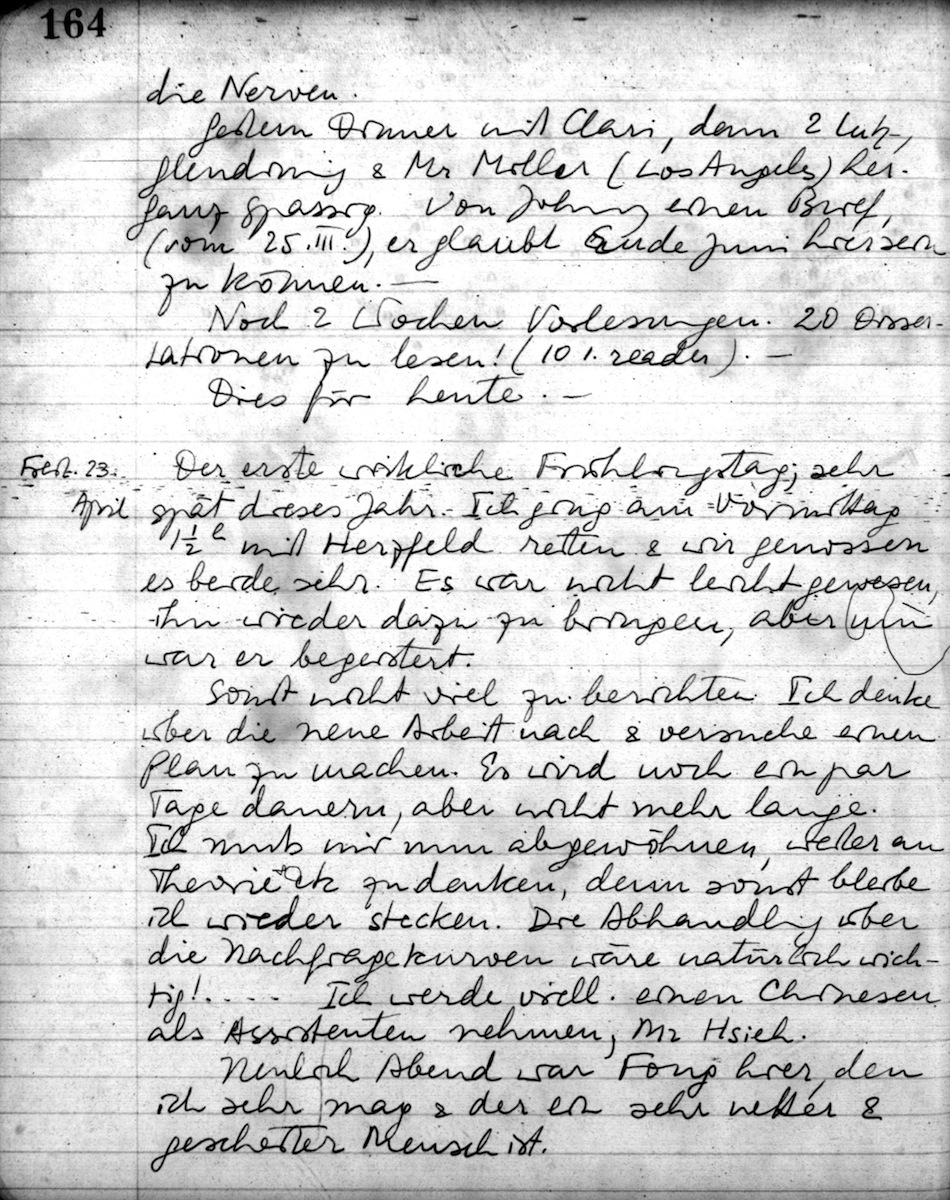 164
die Nerven.
Gestern Dinner mit Clari, dann 2 Lutz,
Glendinnig & Mr Miller (Los Angeles) hier.
Ganz spassig. Von Johny einen Brief,
(vom 25.III.), er glaubt Ende Juni hier sein
zu können. —
Noch 2 Wochen Vorlesungen. 20 Disser-
tationen zu lesen! (10 1. reader). —
Dies für heute. —
Freit. 23. Der erste wirkliche Frühlingstag; sehr
April spät dieses Jahr. Ich ging am Vormittag
1½ h mit Herzfeld reiten & wir genossen
es beide sehr. Es war nicht leicht gewesen,
ihn wieder dazu zu bringen, aber nun
war er begeistert.
Sonst nicht viel zu berichten. Ich denke
über die neue Arbeit nach & versuche einen
Plan zu machen. Es wird noch ein par
Tage dauern, aber nicht mehr lange.
Ich muss mir nun abgewöhnen, weiter an
Theorie zu denken, denn sonst bleibe
ich wieder stecken. Die Abhandlg über
die Nachfragekurven wäre natürlich wich-
tig!.... Ich werde viell. einen Chinesen
als Assistenten nehmen, Mr Hsieh.
Neulich Abend war Fong hier, den
ich sehr mag & der ein sehr netter &
gescheiter Mensch ist.